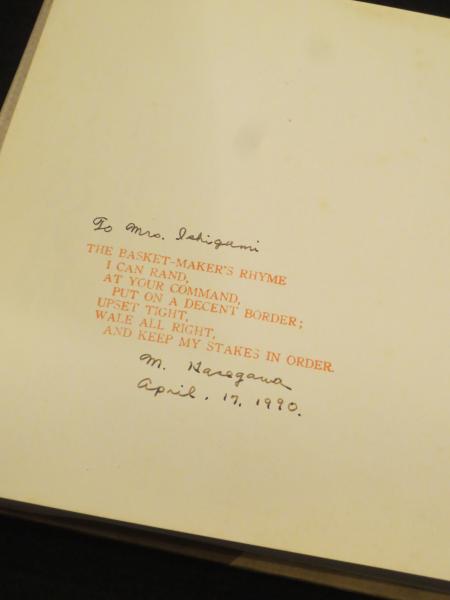 To Mrs. Ishigami
THE BASKET-MAKER'S RHYME
I CAN RAND,
AT YOUR COMMAND,
PUT ON A DECENT BORDER;
UPSET TIGHT,
WALE ALL RIGHT,
AND KEEP MY STAKES IN ORDER.
M. Hasegawa
April. 17, 1990.